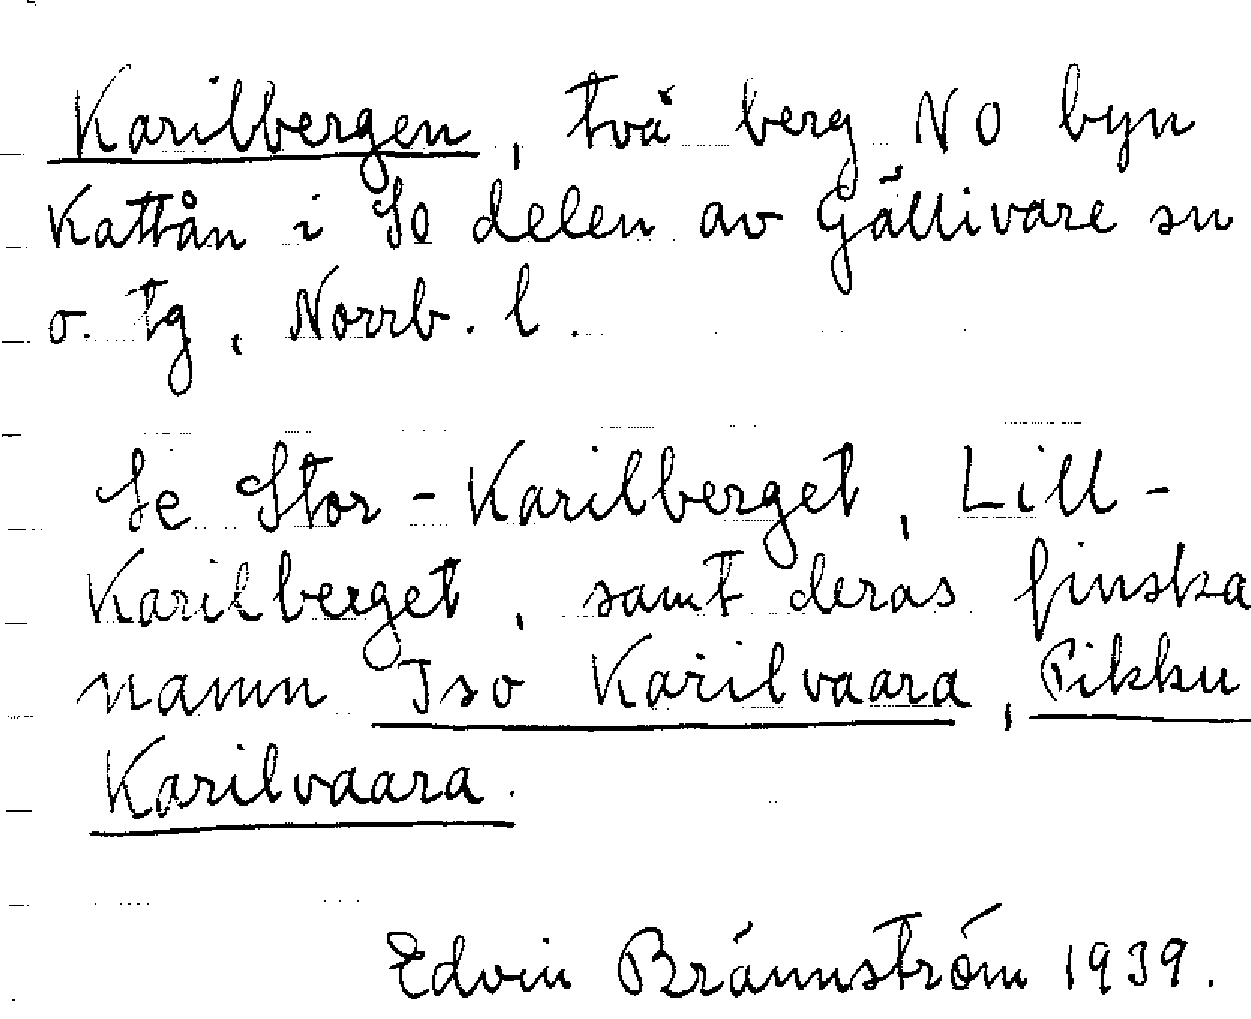 Karilbergen, två berg NO byn
Kattån i SO delen av Gällivare sn
o. tg, Norrb. l.
Se Stor-Karilberget, Lill-
Karilberget, samt deras finska
namn Iso Karilvaara, Pikku
Karilvaara.
Edvin Brännström 1939.